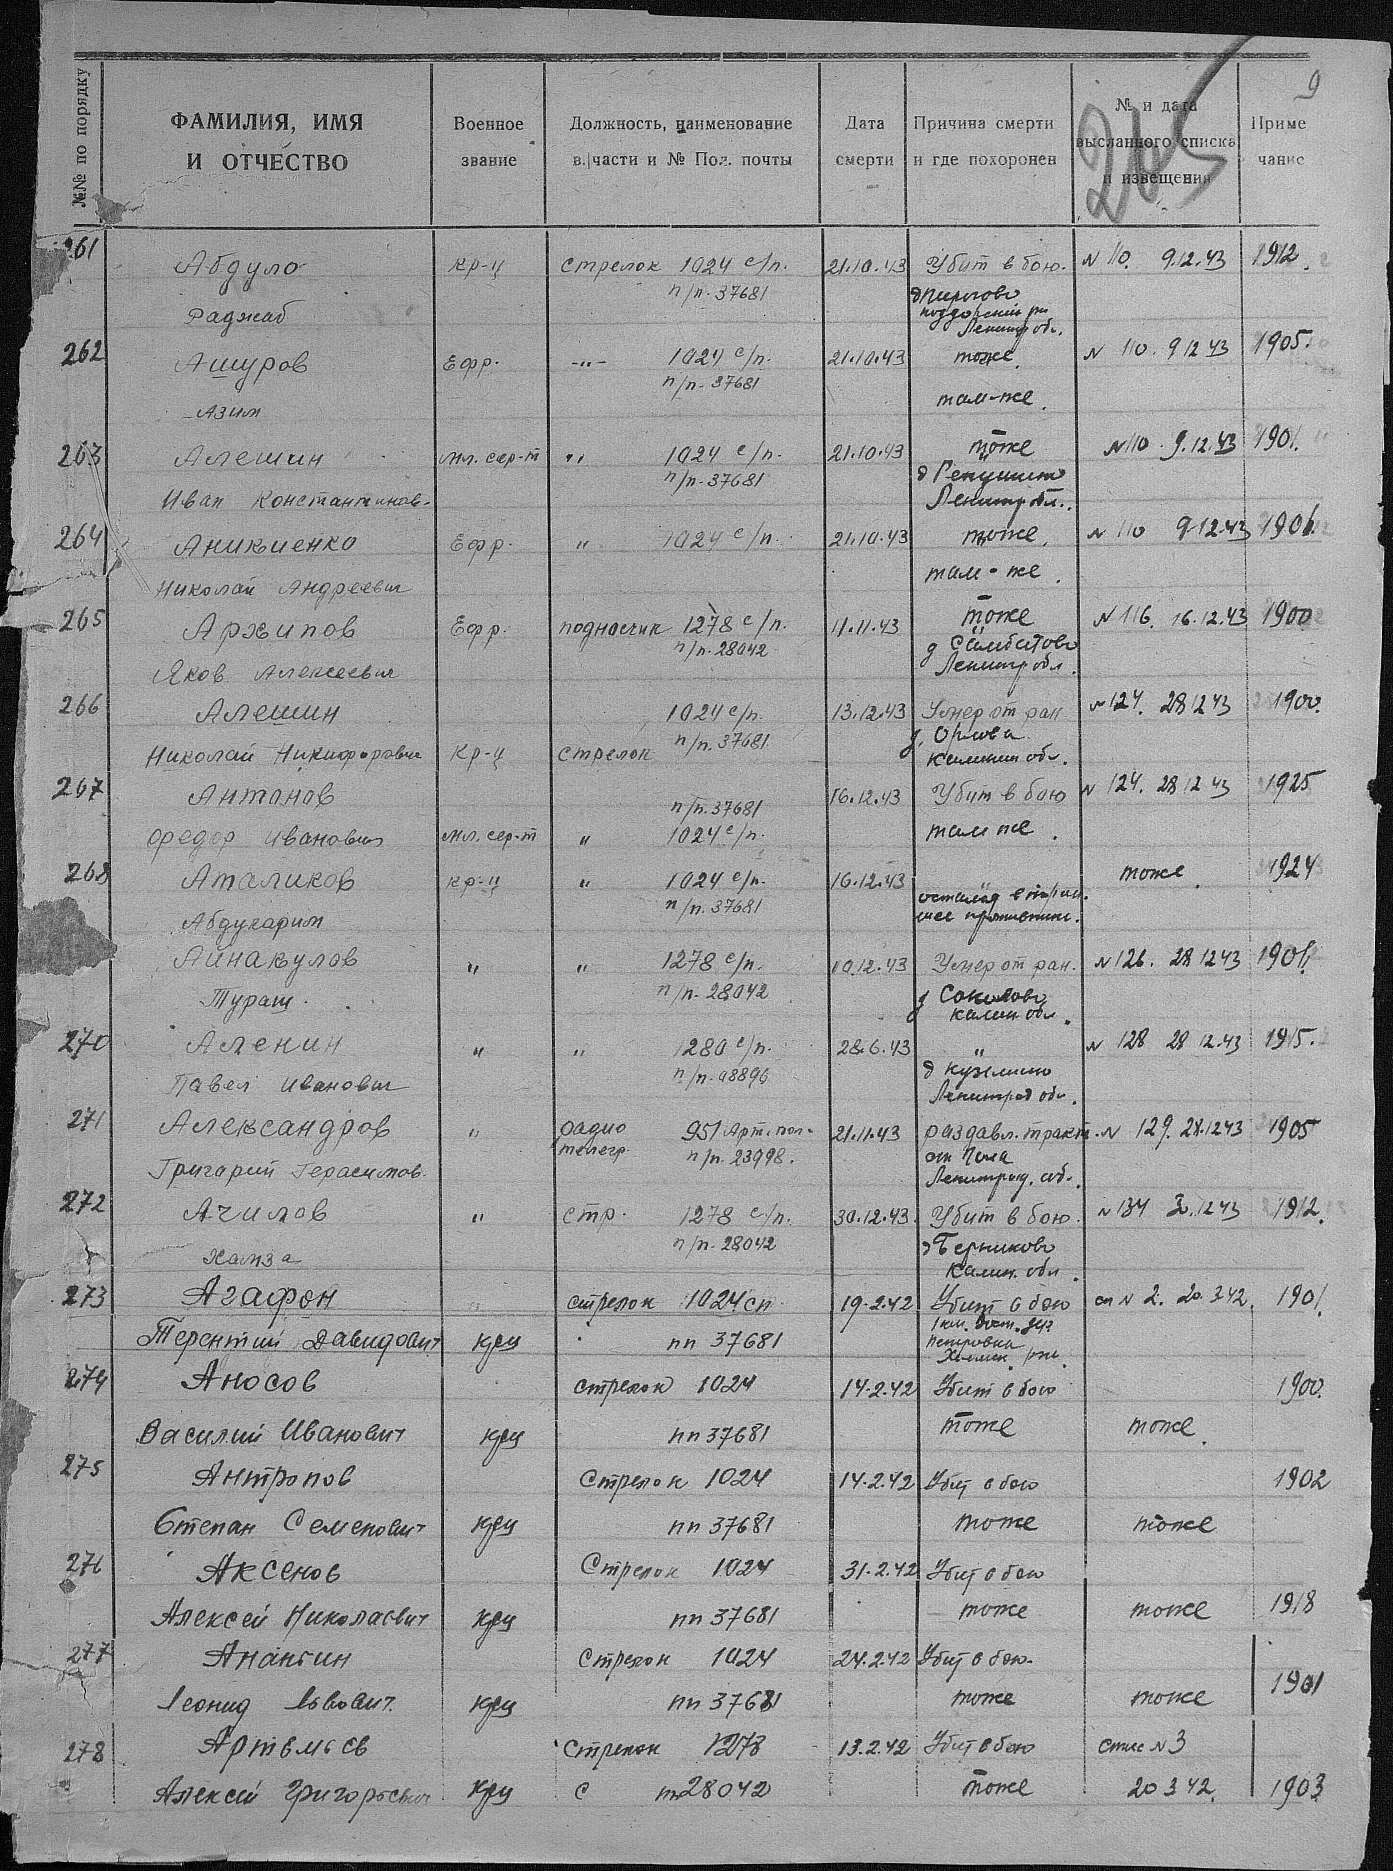 9
205
№№ по порядку
ФАМИЛИЯ, ИМЯ И ОТЧЕСТВО
Военное звание
Должность, наименование в.|части и № Пол. почты
Дата смерти
Причина смерти и где похоронен
№ и дата высланного списка и извещения
Приме чание
261 Абдуло кр-ц стрелок 1024 с/п. 21.10.43 Убит в бою. N 110. 9.12.43 1912
п/п. 37681
Раджаб Ленингр обл.
262 Ашуров Ефр. -"- 1024 с/п. 21.10.43 тоже. N 110. 9 12 43 1905.
п/п. 37681
Азим там-же.
263 Алешин мл. сер-т " 1024 с/п. 21.10.43 тоже N 110 9.12.43 1901.
п/п. 37681
Иван Константинов- Ленингр обл.
264 Аникиенко Ефр. " 1024 с/п. 21.10.43 тоже. N 110 9.12.43
Николай Андреевич там-же.
265 Архипов Ефр. подносчик 1278 с/п. 11.11.43 тоже N 116. 16.12.43 1900
п/п. 28042 д Самбатово
Яков Алексеевич Ленингр обл.
266 Алешин 1024 с/п. 13.12.43 Умер от ран N 124. 28 12 43 1900.
п/п. 37681 д. Орлова
Николай Никифорович Кр-ц стрелок Калинин обл.
267 Антонов 16.12.43 Убит в бою N 124. 28 12 43 1925
п/п. 37681
Федор Иванович мл. сер-т " 1024 с/п. там же.
268 Аталиков кр-ц " 1024 с/п. 16.12.43 тоже. 1924
п/п. 37681 остался в тран-
Абдукарим шее противник.
Айнакулов " " 1278 с/п. 10.12.43 Умер от ран. N 126. 28 12 43
Тураш п/п. 28042 д Соколово
Калин обл.
270 Аленин " " 1280 с/п. 28.6.43 " N 128 28 12.43 1915.
п/п. 08896 д Кузьмино
Павел Иванович Ленинград обл.
271 Александров " радио 951 Арт. пол- 21.11.43 раздавл. тракт. N 129. 28.12 43 1905
телегр. п/п. 23998. ст Пола
Григорий Герасимов. Ленинград. об.
272 Ачилов " стр. 1278 с/п. 30.12.43. Убит в бою. N 134 1912.
п/п. 28042 д Берниково
Хамза Калин. обл.
273 Агафон стрелок 1024 сп 19.2.42 Убит в бою сп N 2. 20.3 42. 1901.
1 км. вост. дер
Терентий Давидович крц пп 37681 Петровка
Холмск. рн.
274 Аносов стрелок 1024 14.2.42 Убит в бою 1900.
Василий Иванович крц пп 37681 тоже тоже.
275 Антропов Стрелок 1024 14.2.42 Убит в бою 1902
Степан Семенович крц пп 37681 тоже тоже
276 Аксенов Стрелок 1024 31.2.42 Убит в бою
Алексей Николаевич крц пп 37681 тоже тоже 1918
277 Ананьин Стрелок 1024 24.2.42 Убит в бою.
Леонид Львович. крц пп 37681 тоже тоже 1901
278 Артемьев Стрелок 1278 13.2.42 Убит в бою спис N 3
Алексей Григорьевич крц С пп 28042 тоже 20 3 42. 1903